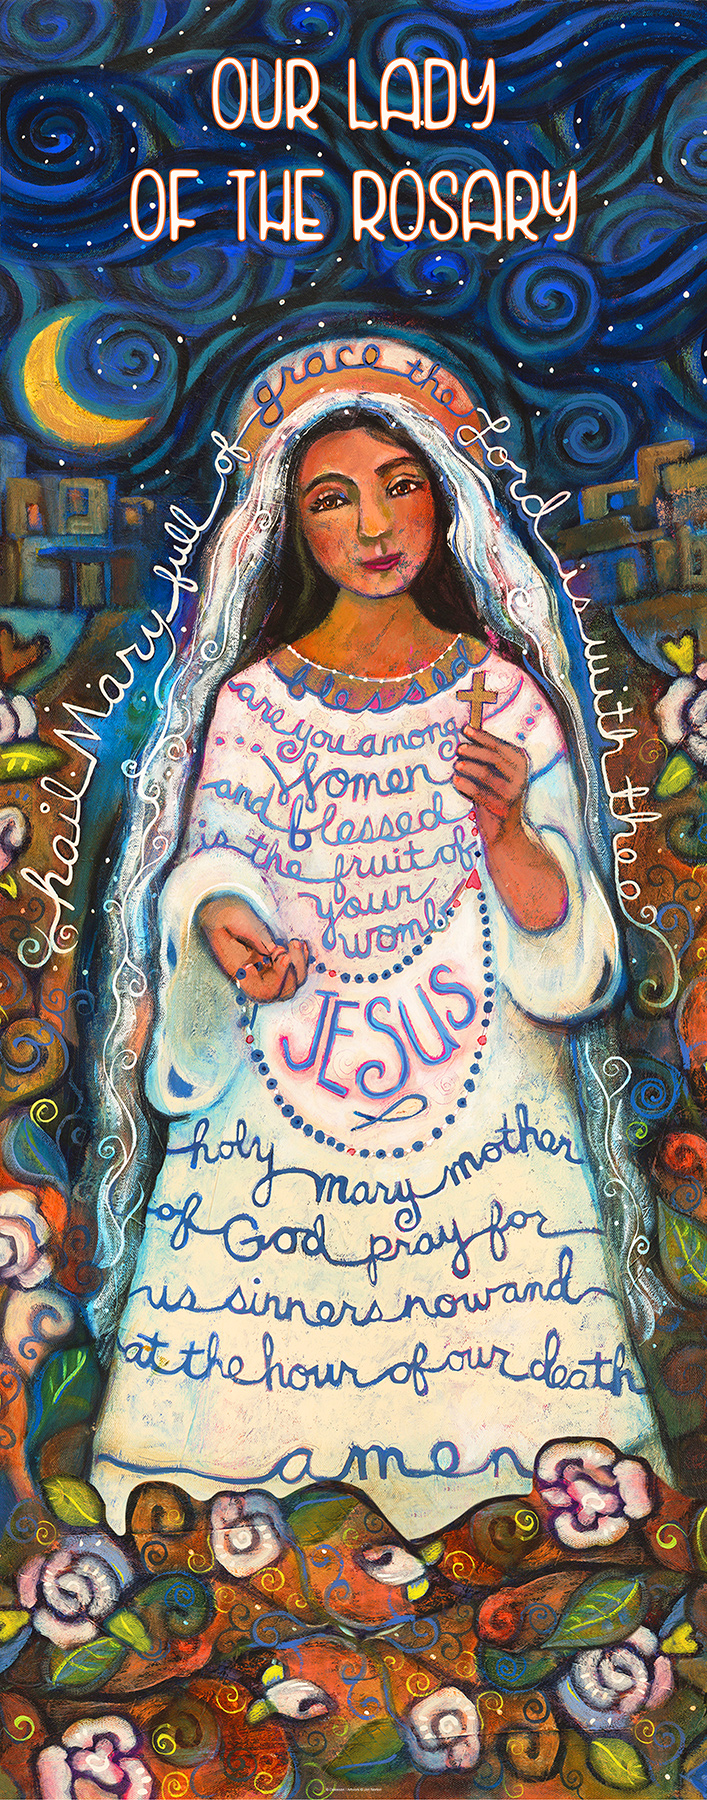 OUR LADY
OF THE ROSARY
hail Mary full of grace the Lord is with thee
blessed
are you among
Women
and blessed
is the fruit of
your
womb
JESUS
holy mary mother
of God pray for
us sinners now and
at the hour of our death
amen